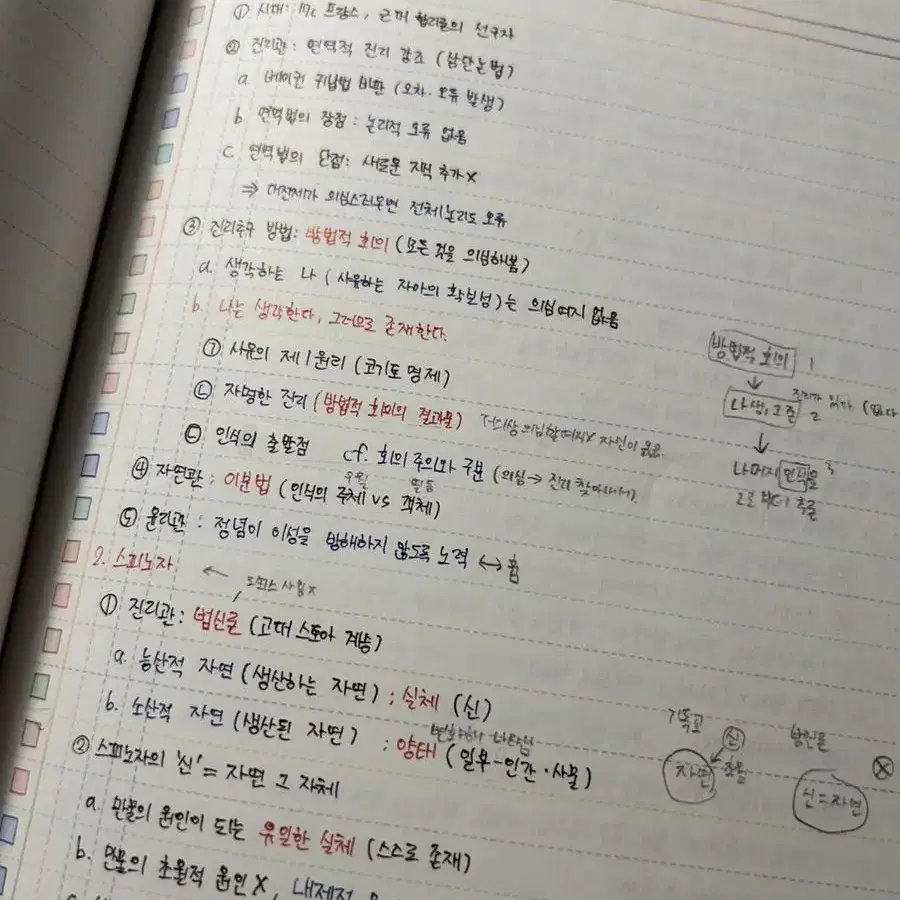 ① 시대: 17c 프랑스, 근대 합리론의 선구자
② 진리관: 연역적 진리 강조 (삼단논법)
a. 베이컨 귀납법 비판 (오차·오류 발생)
b. 연역법의 장점: 논리적 오류 없음
c. 연역법의 단점: 새로운 지식 추가 X
⇒ 대전제가 의심스러우면 전체 논리도 오류
③ 진리추구 방법: 방법적 회의 (모든 것을 의심해봄)
a. 생각하는 나 (사유하는 자아의 확보성)는 의심여지 없음
b. 나는 생각한다, 그러므로 존재한다.
㉠ 사유의 제1원리 (코기토 명제)
㉡ 자명한 진리 (방법적 회의의 결과물) 더이상 의심할 여지X
㉢ 인식의 출발점 cf. 회의주의와 구분 (의심→진리 찾아내서)
④ 자연관: 이분법 (인식의 주체 vs 객체)
우월 열등
⑤ 윤리관: 정념이 이성을 방해하지 않도록 노력 ↔ 흄
방법적 회의 1
↓
나생,그존 2
진리가 있다 (없다
↓
나머지 3
2. 스피노자
←
① 진리관: 범신론 (고대 스토아 계승)
a. 능산적 자연 (생산하는 자연) : 실체 (신)
b. 소산적 자연 (생산된 자연) : 양태 (일부-인간·사물)
변화해 나타남
② 스피노자의 '신' = 자연 그 자체
a. 만물의 원인이 되는 유일한 실체 (스스로 존재)
b. 만물의 초월적 원인 X, 내재적
기독교
신
자연 초월
범신론
신=자연